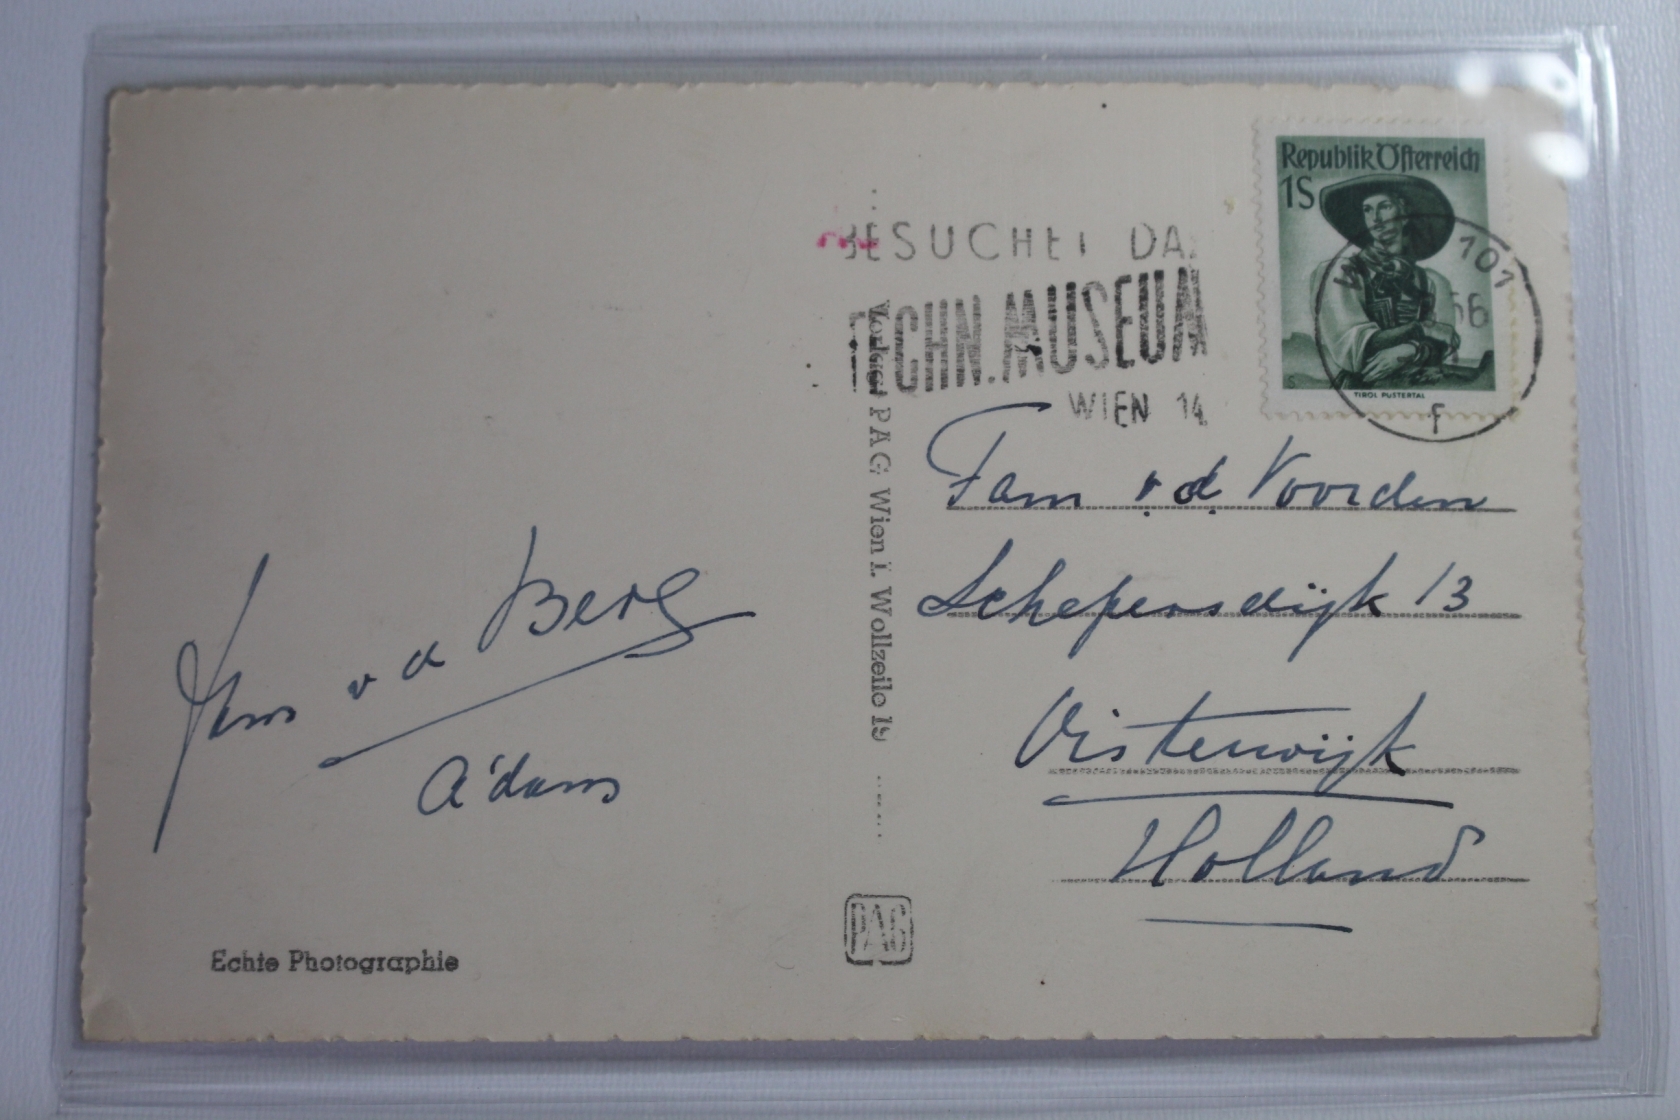 Republik Österreich
1S
TIROL PUSTERTAL
101
56
f
BESUCHET DAS
TECHN. MUSEUM
WIEN 14
Fam v. d. Voorden
Schepersdijk 13
Oisterwijk
Holland
v d Berg
A'dam
Verlag PAG Wien I. Wollzeile 19
PAG
Echte Photographie